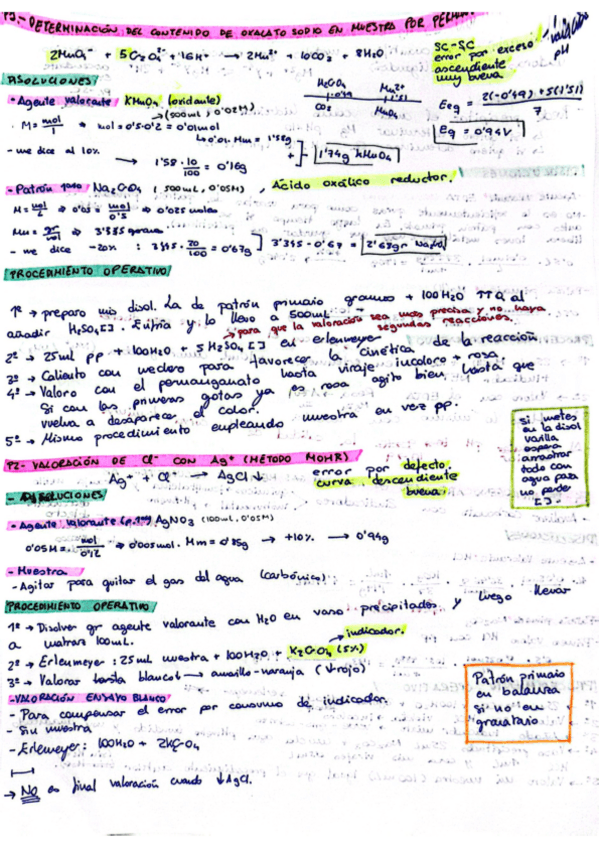 P3.- DETERMINACIÓN DEL CONTENIDO DE OXALATO SODIO EN MUESTRA POR
2MnO4⁻ + 5C2O4²⁻ + 16H⁺ → 2Mn²⁺ + 10CO2 + 8H2O
SC-SC
error por exceso
ascendiente
muy buena
pH
DISOLUCIONES
- Agente valorante KMnO4 (oxidante)
→ (500mL, 0'02M)
· M = mol/l → mol = 0'5·0'2 = 0'01mol
→ 0'01·Mm = 1'58g
- me dice al 10%
→ 1'58·10/100 = 0'16g
1'74g KMnO4
H2C2O4 Mn²⁺
-0'49 1'51
CO2 MnO4
Eeq = 2(-0'49) + 5(1'51) / 7
Eq = 0'94V
- Patrón 1ario Na2C2O4 (500mL, 0'05M), Ácido oxálico reductor.
M = mol/L → 0'05 = mol/0'5 → 0'025 moles
→ 3'345 gramos
- me dice -20% : 3'345·20/100 = 0'67g
3'345 - 0'67 =
PROCEDIMIENTO OPERATIVO
1º → preparo mis disol. La de patrón primario gramos + 100H2O ↑Tª al
añadir H2SO4 [ ]. Enfría y lo llevo a 500mL
→ para que la valoración sea mas precisa y no haya
segundas reacciones.
2º → 25ml pp + 100H2O + 5 H2SO4 [ ] en erlenmeyer
3º → Caliento con mechero para favorecer la cinética de la reacción
4º → Valoro con el permanganato hasta viraje incoloro → rosa.
Si con las primeras gotas ya es rosa agito bien, hasta que
vuelva a desaparecer el color.
5º → Mismo procedimiento empleando muestra en vez pp.
si metes
en la disol
varilla
espera
arrastrar
todo con
agua para
no perder
[ ].
P2- VALORACIÓN DE Cl⁻ CON Ag⁺ (MÉTODO MOHR)
Ag⁺ + Cl⁻ → AgCl↓
error por defecto.
curva descendiente
buena.
- DISOLUCIONES
- Agente valorante AgNO3 (100mL, 0'05M)
→ 0'005mol · Mm = 0'85g → +10% → 0'94g
- Muestra
- Agitar para quitar el gas del agua (carbónico)
PROCEDIMIENTO OPERATIVO
1º → Disolver gr agente valorante con H2O en vaso precipitados y luego llevar
a matraz 100mL.
→ indicador.
2º → Erlenmeyer: 25mL muestra + 100H2O + K2CrO4 (5%)
3º → Valorar hasta blanco → amarillo-naranja (↓rojo)
- VALORACIÓN ENSAYO BLANCO
- Para compensar el error por consumo de indicador.
- Sin muestra
- Erlenmeyer: 100H2O + 2KCrO4
→ NO es final valoración cuando ↓AgCl.
Patrón primario
en balanza
si no en
granatario